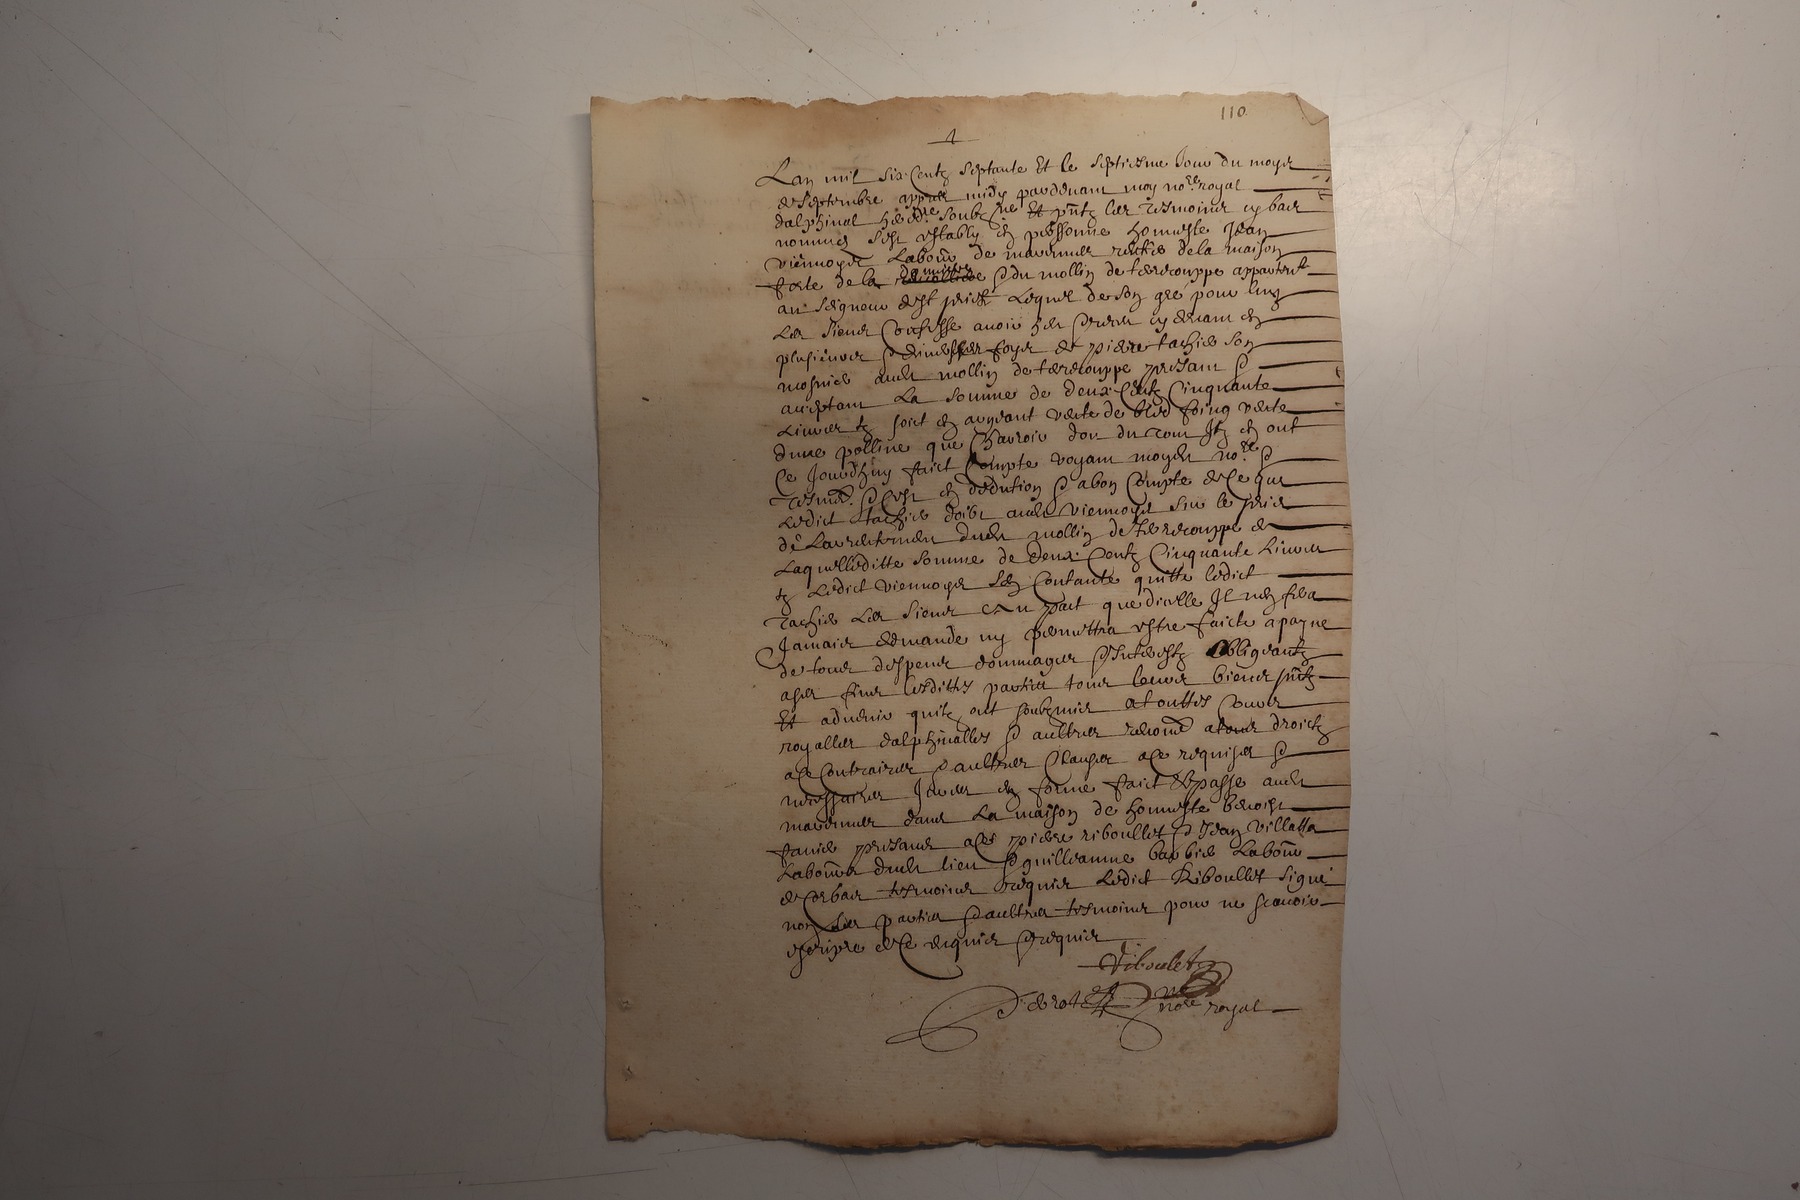 110
Lan mil six Centz septante Et le septiesme Jour du moys
de septembre appres midy pardevant moy no.re royal
dalphinal hered.re soubz.ne Et pntz les tesmoins cy bas
nommes sest estably en personne honneste Jean
viennoys Labour de marennes rentier de la maison
forte de la domniere & du mollin de terrecouppe appartent
au seigneur de st priest Lequel de son gre pour luy
Les siens Confesse avoir heu & receu cy devant en
plusieurs & diverses foys de pierre tachier son
mosnier audit mollin de terrecouppe presant &
acceptant La somme de deux Centz Cinquante
Livres tz soict en argent vente de bled foing vente
dune polline que Charrois dou du tout Ilz en ont
Ce Jourdhuy faict Compte voyant moydit no.re &
tesmo. & Cest en dedution & a bon Compte de Ce que
Ledict tachier doibt audit viennoys sur le prix
de Larrentement dudit mollin de terrecouppe de
Laquelleditte somme de deux Centz Cinquante Livres
tz Ledict viennoys sen Contante quitte ledict
tachier Les siens que dicelle Il nen fera
Jamais demande ny permettra estre faicte a payne
de tous despens dommages & Interestz obligeantz
a ses fins lesdittes parties tous leurs biens pntz
Et advenir quilz ont soubzmis a touttes Cours
royalles dalphinalles & aultres renonc a tous droictz
a Ce Contraires & aultres Clauses a Ce requises &
necessaires Jures en forme faict & passe audit
marennes dans La maison de honneste benoist
presans a Ces pierre riboullet & Jean villatta
Labours dudit lieu & guilleaume barbier Labour
de Corbas tesmoins requis Ledict Riboullet signe
non Les parties & aultres tesmoins pour ne scavoir
escripre de Ce enquis & requis
riboulet
no.re royal